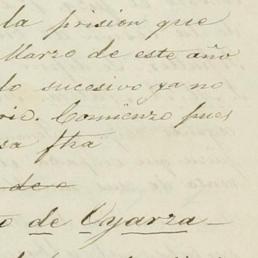 la prision que
Marzo de este año
lo sucesivo ya no
rio. Comienzo pues
sa fha
de
o de Oyarza-